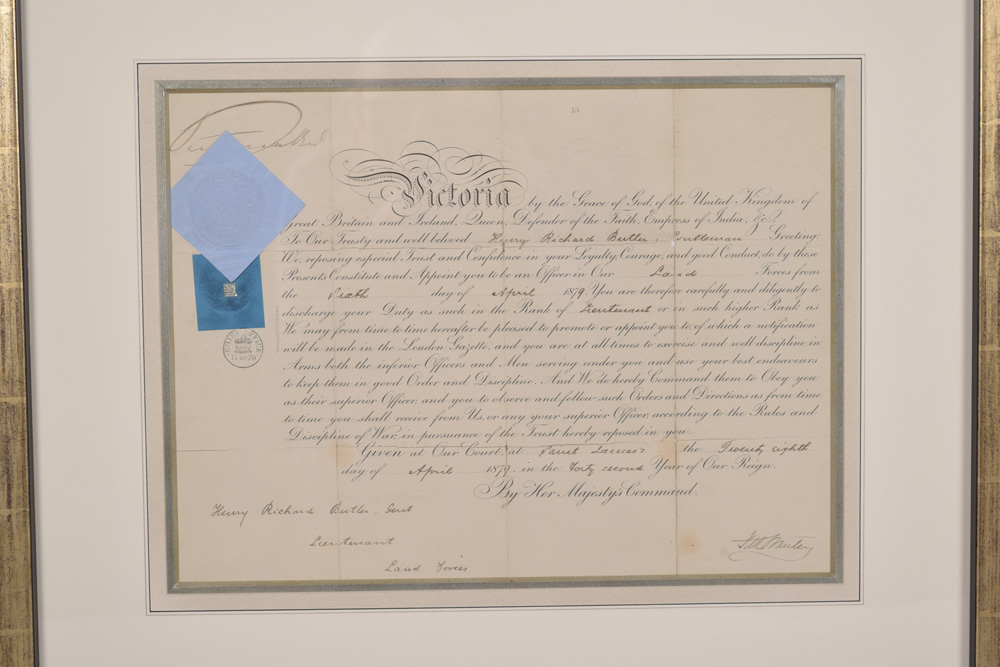 13
Victoria by the Grace of God, of the United Kingdom of
Great Britain and Ireland, Queen, Defender of the Faith, Empress of India, &c.
To Our Trusty and well beloved Henry Richard Butler, Gentleman Greeting:
We, reposing especial Trust and Confidence in your Loyalty, Courage, and good Conduct, do by these
Presents Constitute and Appoint you to be an Officer in Our Land Forces from
the Sixth day of April 1879. You are therefore carefully and diligently to
discharge your Duty as such in the Rank of Lieutenant or in such higher Rank as
We may from time to time hereafter be pleased to promote or appoint you to, of which a notification
will be made in the London Gazette, and you are at all times to exercise and well discipline in
Arms both the inferior Officers and Men serving under you and use your best endeavours
to keep them in good Order and Discipline. And We do hereby Command them to Obey you
as their superior Officer, and you to observe and follow such Orders and Directions as from time
to time you shall receive from Us, or any your superior Officer, according to the Rules and
Discipline of War, in pursuance of the Trust hereby reposed in you.
Given at Our Court, at Saint James's the Twenty eighth
day of April 1879 in the Forty second Year of Our Reign.
By Her Majesty's Command.
Henry Richard Butler, Gent
Lieutenant
Land Forces